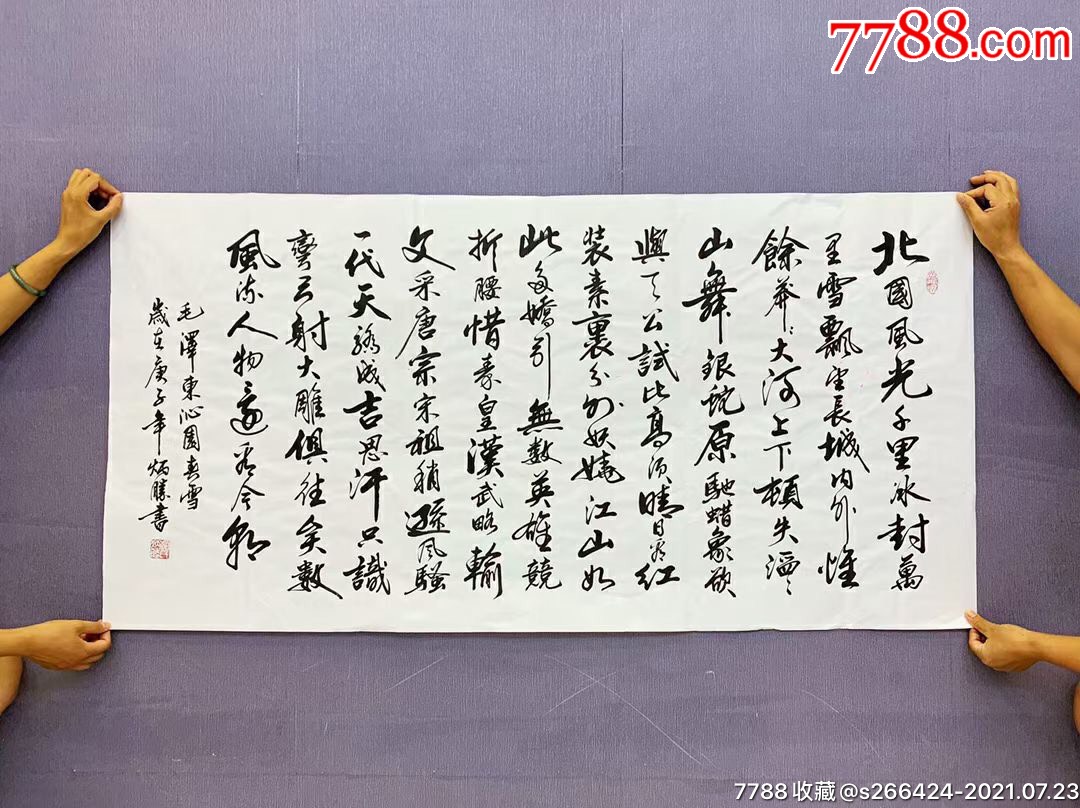 7788.com
北國風光千里冰封萬
里雪飄望長城内外惟
餘莽〻大河上下頓失滔〻
山舞銀蛇原馳蜡象欲
與天公試比高須晴日看紅
裝素裹分外妖嬈江山如
此多嬌引無數英雄競
折腰惜秦皇漢武略輸
文采唐宗宋祖稍遜風騷
一代天驕成吉思汗只識
彎弓射大雕俱往矣數
風流人物還看今朝
毛澤東沁園春雪
歲在庚子年炳勝書
7788收藏@s266424-2021.07.23